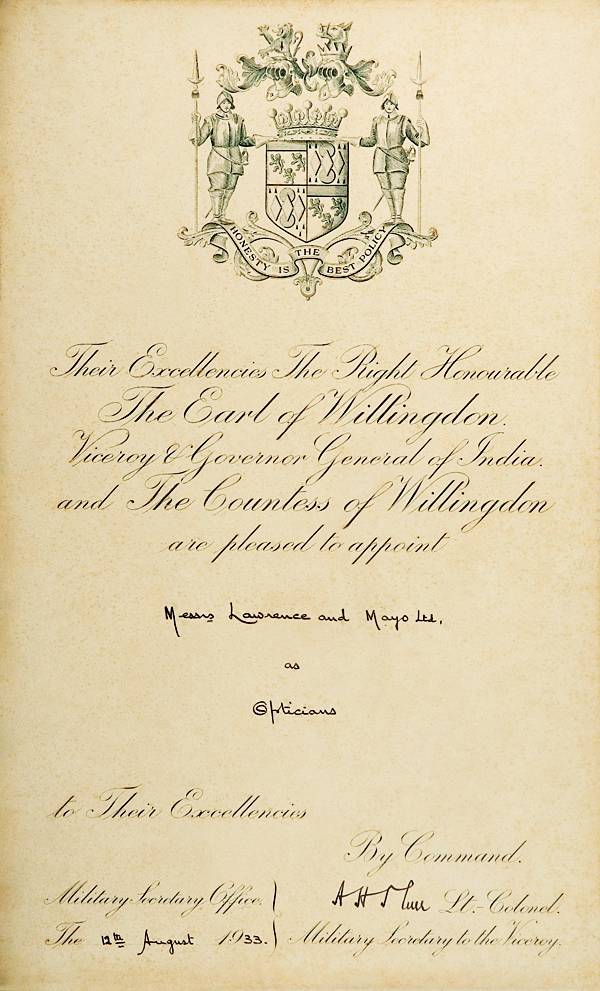 HONESTY IS THE BEST POLICY
Their Excellencies The Right Honourable
The Earl of Willingdon.
Viceroy & Governor General of India.
and The Countess of Willingdon
are pleased to appoint
Messrs Lawrence and Mayo Ltd.
as
Opticians
to Their Excellencies
By Command.
Military Secretary Office. Lt.-Colonel.
The 12th August 1933. Military Secretary to the Viceroy.